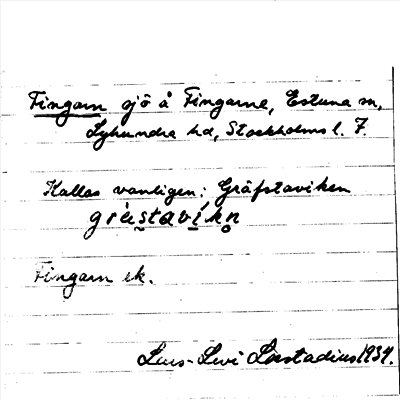 Fingarn sjö å Fingarne, Estuna sn,
Lyhundra hd, Stockholms l. 7.
Kallas vanligen: Gräfstaviken
grästavíkn
Fingarn ek.
Lars-Levi Læstadius 1934.